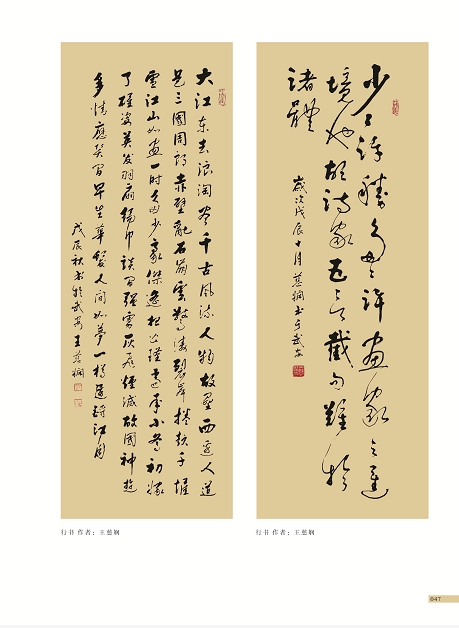 少
境也故诗家五言截句难于
诸体
岁次戊辰十月慈娴书于武安
大江东去浪淘尽千古风流人物故垒西边人道
是三国周郎赤壁乱石崩云惊涛裂岸卷起千堆
雪江山如画一时多少豪杰遥想公瑾当年小乔初嫁
了雄姿英发羽扇纶巾谈笑间强虏灰飞烟灭故国神游
多情应笑我早生华发人间如梦一樽还酹江月
戊辰秋书于武安王慈娴
行书 作者：王慈娴
行书 作者：王慈娴
047